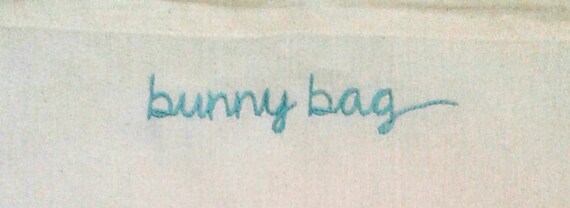 bunny bag